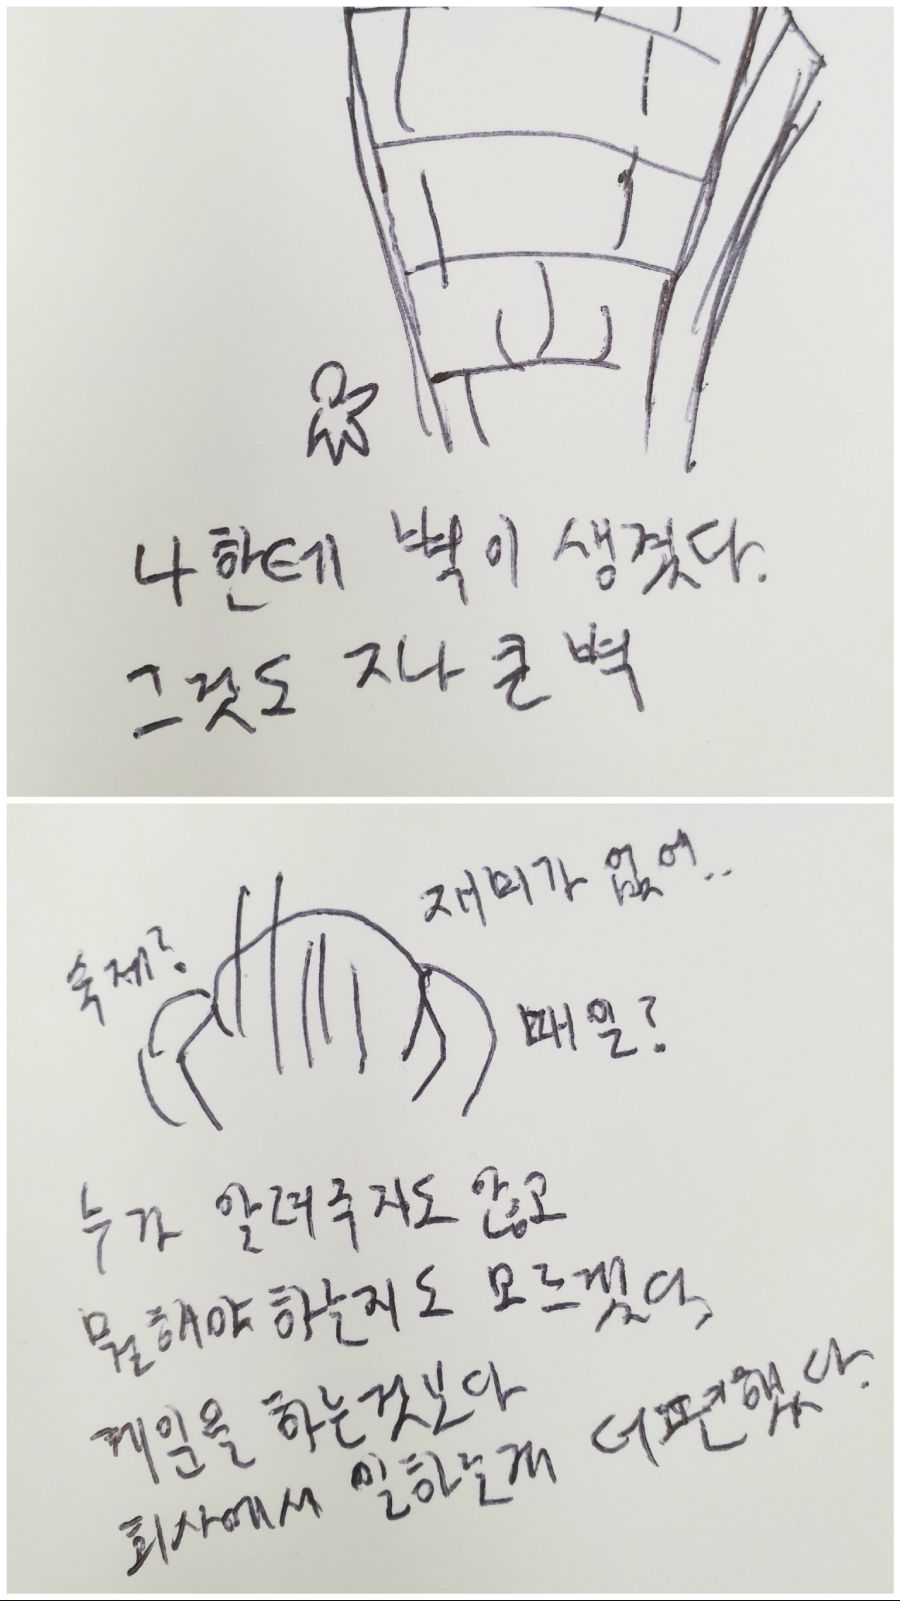 나한테 벽이 생겼다.
그것도 지나 큰 벽
숙제?
재미가 없어..
때일?
누가 알려주지도 않고
뭘해야하는지도 모르겠다,
하는것보다
회사에서 일하는게 더편했다.